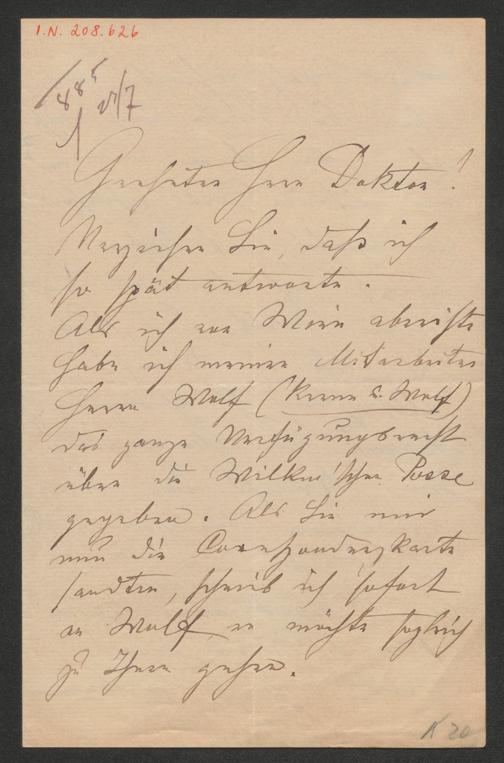 I.N. 208.626
188
Geehrter Herr Doktor!
Verzeihen Sie, daß ich
so spät antworte.
Als ich von Wien abreiste
habe ich meinen Mitarbeiter
Herrn Wolf (Krenn & Wolf)
das ganze Verfügungsrecht
über die Wilken'schen Posse
gegeben. Als Sie mir
nun die Correspondenzkarte
sandten, schrieb ich sofort
an Wolf, er möchte sogleich
zu Ihnen gehen.
N 20